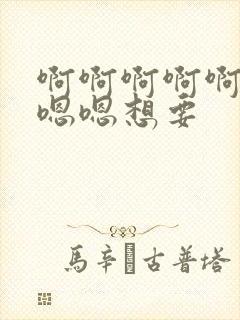 啊啊啊啊啊
嗯嗯想要
馬辛�古普塔